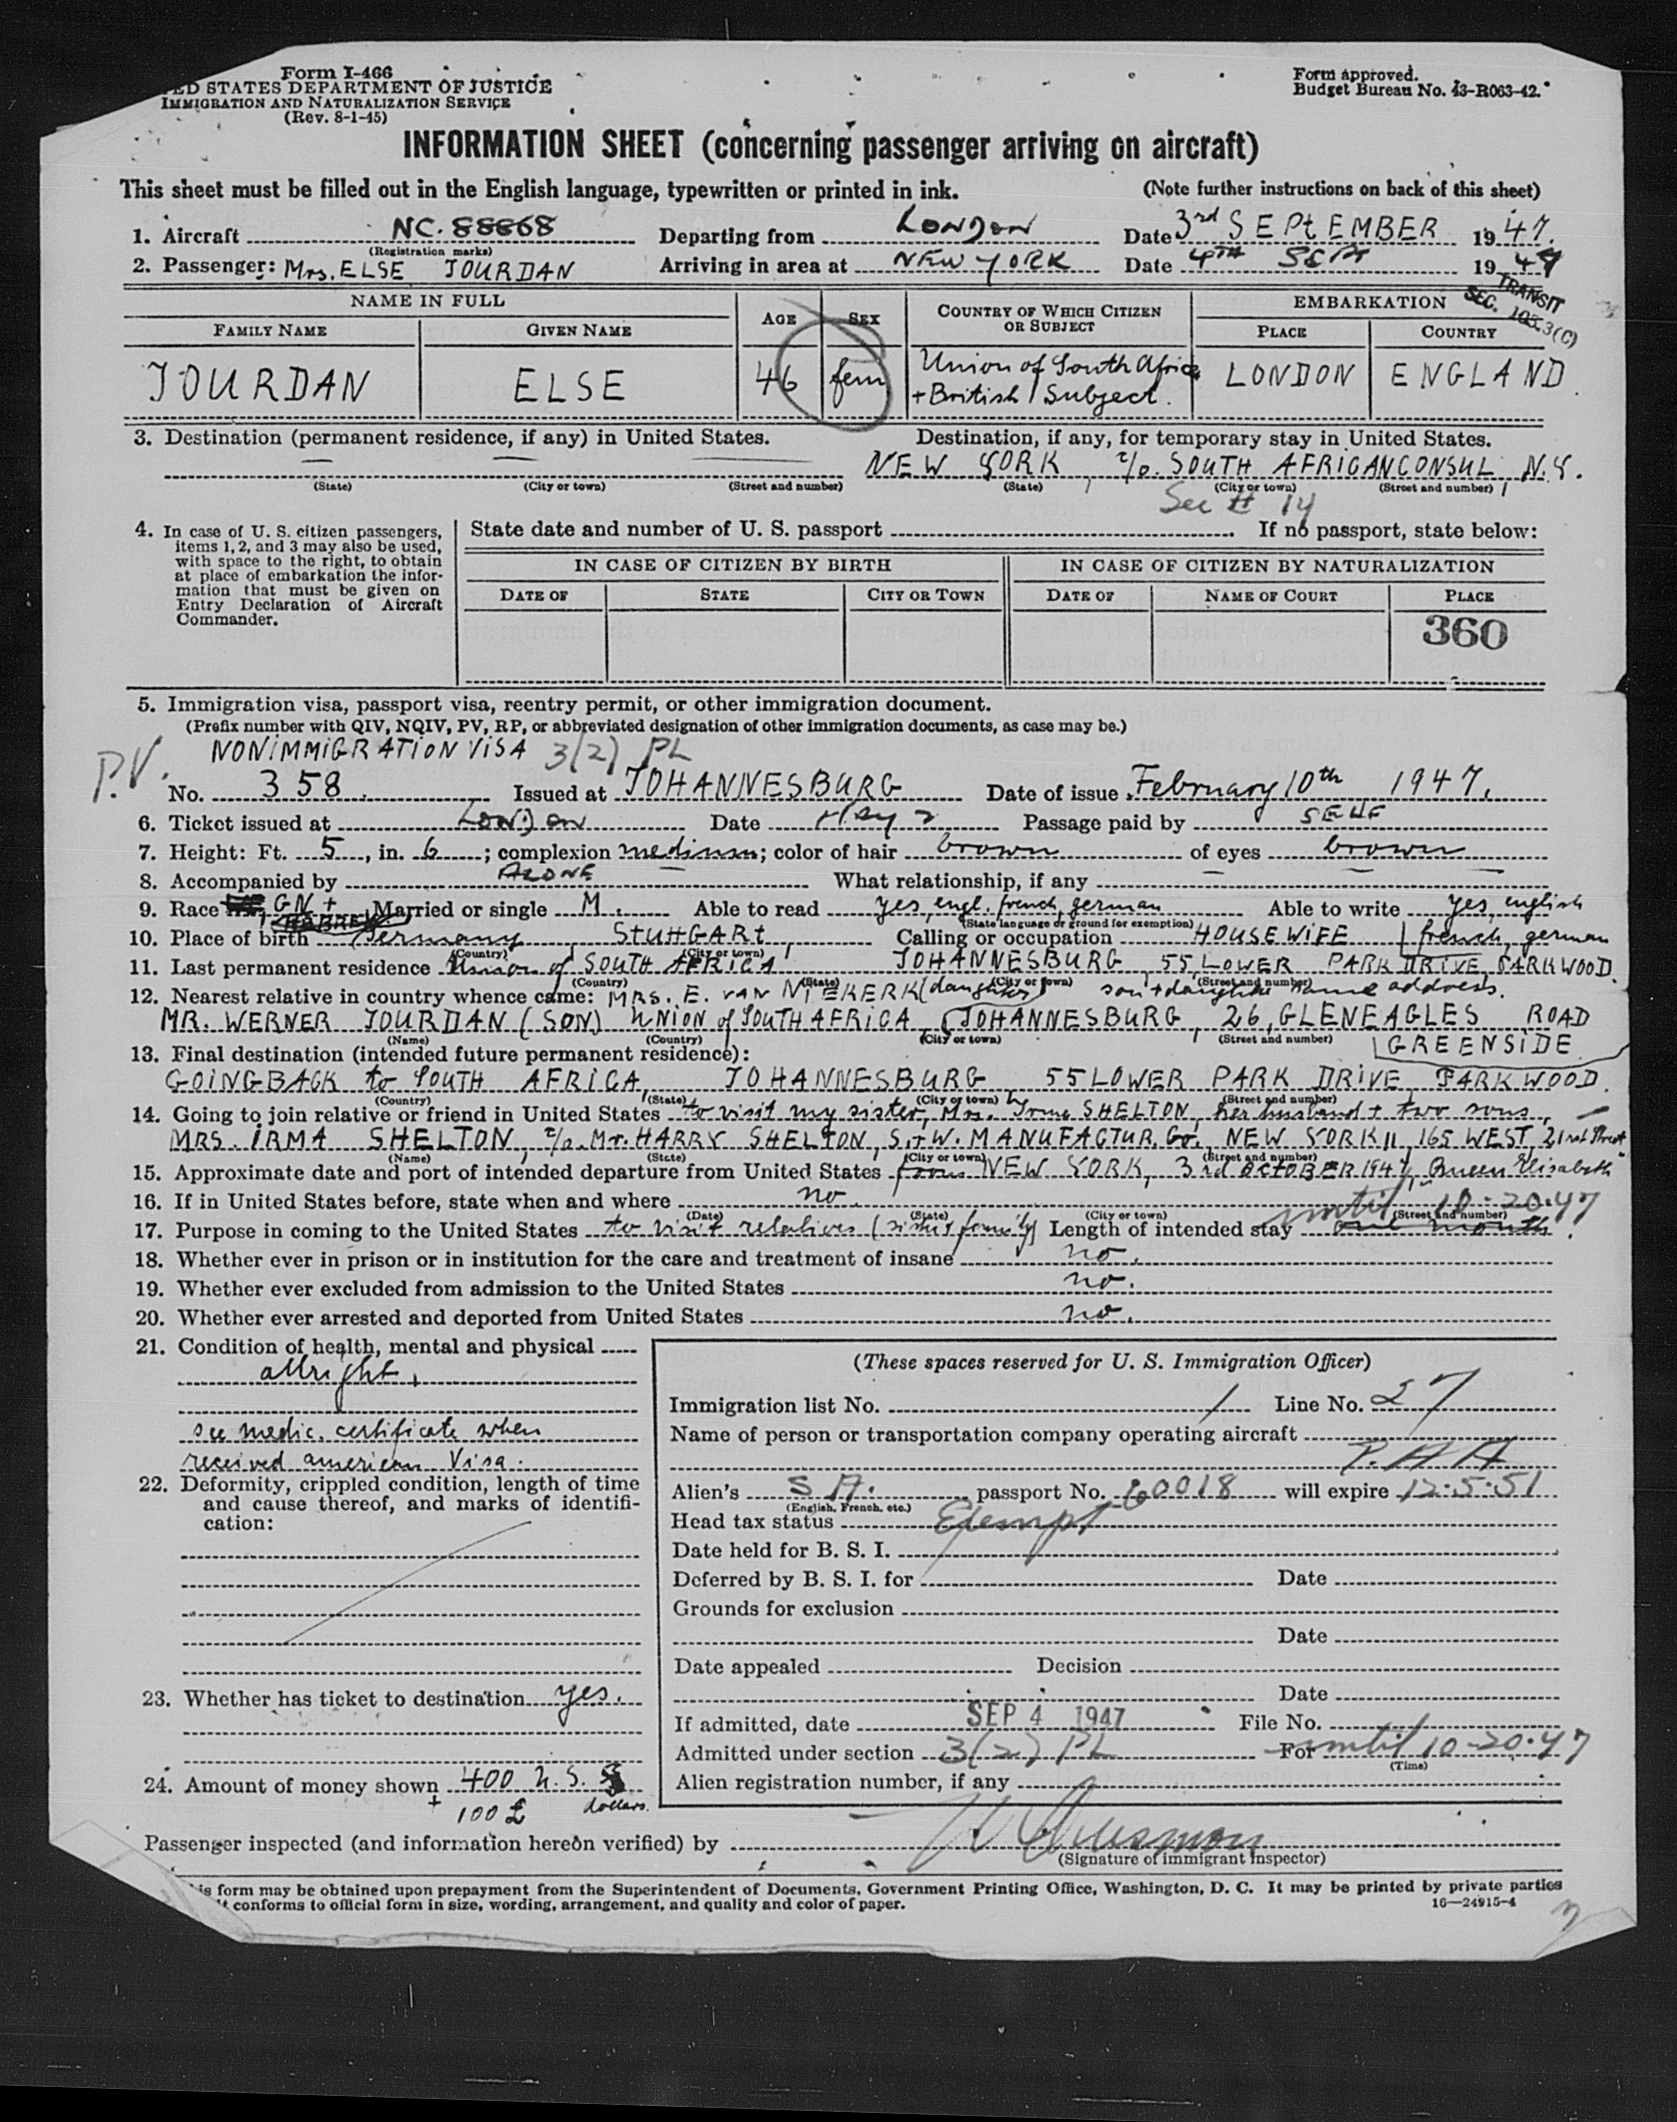 Form I-466
ED STATES DEPARTMENT OF JUSTICE
IMMIGRATION AND NATURALIZATION SERVICE
(Rev. 8-1-45)
Form approved.
Budget Bureau No. 43-R063-42.
INFORMATION SHEET (concerning passenger arriving on aircraft)
This sheet must be filled out in the English language, typewritten or printed in ink. (Note further instructions on back of this sheet)
1. Aircraft NC. 88868 Departing from LONDON Date 3rd SEPtEMBER 1947.
(Registration marks)
2. Passenger: Mrs. ELSE JOURDAN Arriving in area at NEW YORK Date 4TH SEPT 1947
TRANSIT
SEC. 105.3(C)
NAME IN FULL AGE SEX COUNTRY OF WHICH CITIZEN OR SUBJECT EMBARKATION
FAMILY NAME GIVEN NAME PLACE COUNTRY
JOURDAN ELSE 46 fem Union of South Africa + British Subject. LONDON ENGLAND
3. Destination (permanent residence, if any) in United States. Destination, if any, for temporary stay in United States.
NEW YORK, c/o. SOUTH AFRICAN CONSUL N.Y.
(State) (City or town) (Street and number) (State) (City or town) (Street and number)
See # 14
4. In case of U. S. citizen passengers, items 1, 2, and 3 may also be used, with space to the right, to obtain at place of embarkation the information that must be given on Entry Declaration of Aircraft Commander.
State date and number of U. S. passport If no passport, state below:
IN CASE OF CITIZEN BY BIRTH IN CASE OF CITIZEN BY NATURALIZATION
DATE OF STATE CITY OR TOWN DATE OF NAME OF COURT PLACE
360
5. Immigration visa, passport visa, reentry permit, or other immigration document.
(Prefix number with QIV, NQIV, PV, RP, or abbreviated designation of other immigration documents, as case may be.)
P.V. NONIMMIGRATION VISA 3(2) PL
No. 358 Issued at JOHANNESBURG Date of issue February 10th 1947.
6. Ticket issued at London Date May 2 Passage paid by SELF
7. Height: Ft. 5, in. 6; complexion medium; color of hair brown of eyes brown
8. Accompanied by ALONE What relationship, if any
9. Race GN + HEBREW Married or single M. Able to read yes, engl. french, german Able to write yes, english french, german
(State language or ground for exemption)
10. Place of birth Germany, StuttGARt, Calling or occupation HOUSEWIFE
(Country) (City or town)
11. Last permanent residence Union of SOUTH AFRICA JOHANNESBURG, 55, LOWER PARK DRIVE, PARKWOOD
(Country) (State) (City or town) (Street and number)
12. Nearest relative in country whence came: MRS. E. VAN NIEKERK (daughter) son + daughter same address.
MR. WERNER JOURDAN (SON) UNION of SOUTH AFRICA, JOHANNESBURG, 26, GLENEAGLES ROAD
(Name) (Country) (City or town) (Street and number) GREENSIDE
13. Final destination (intended future permanent residence):
GOING BACK to SOUTH AFRICA, JOHANNESBURG 55 LOWER PARK DRIVE, PARKWOOD.
(Country) (State) (City or town) (Street and number)
14. Going to join relative or friend in United States to visit my sister, Mrs. Irma SHELTON, her husband + two sons,
MRS. IRMA SHELTON, c/o. Mr. HARRY SHELTON, S. + W. MANUFACTUR. Co., NEW YORK 11, 165 WEST, 21rst Street
(Name) (State) (City or town) (Street and number)
15. Approximate date and port of intended departure from United States from NEW YORK, 3rd OCTOBER 1947, "Queen Elisabeth"
16. If in United States before, state when and where no.
(Date) (State) (City or town) (Street and number)
until 10-20-47
17. Purpose in coming to the United States to visit relatives (sister's family) Length of intended stay one month.
18. Whether ever in prison or in institution for the care and treatment of insane no.
19. Whether ever excluded from admission to the United States no.
20. Whether ever arrested and deported from United States no.
21. Condition of health, mental and physical
allright,
see medic. certificate when
received american Visa.
22. Deformity, crippled condition, length of time and cause thereof, and marks of identification:
23. Whether has ticket to destination yes.
24. Amount of money shown 400 U.S. $ dollars.
+ 100 £
(These spaces reserved for U. S. Immigration Officer)
Immigration list No. 1 Line No. 27
Name of person or transportation company operating aircraft
P.A.A
Alien's S A. passport No. 60018 will expire 12.5.51
(English, French, etc.)
Head tax status Exempt
Date held for B. S. I.
Deferred by B. S. I. for Date
Grounds for exclusion
Date
Date appealed Decision
Date
If admitted, date SEP 4 1947 File No.
Admitted under section 3(2) PL For until 10-20-47
(Time)
Alien registration number, if any
Passenger inspected (and information hereon verified) by
(Signature of immigrant inspector)
is form may be obtained upon prepayment from the Superintendent of Documents, Government Printing Office, Washington, D. C. It may be printed by private parties
it conforms to official form in size, wording, arrangement, and quality and color of paper. 16—24915-4